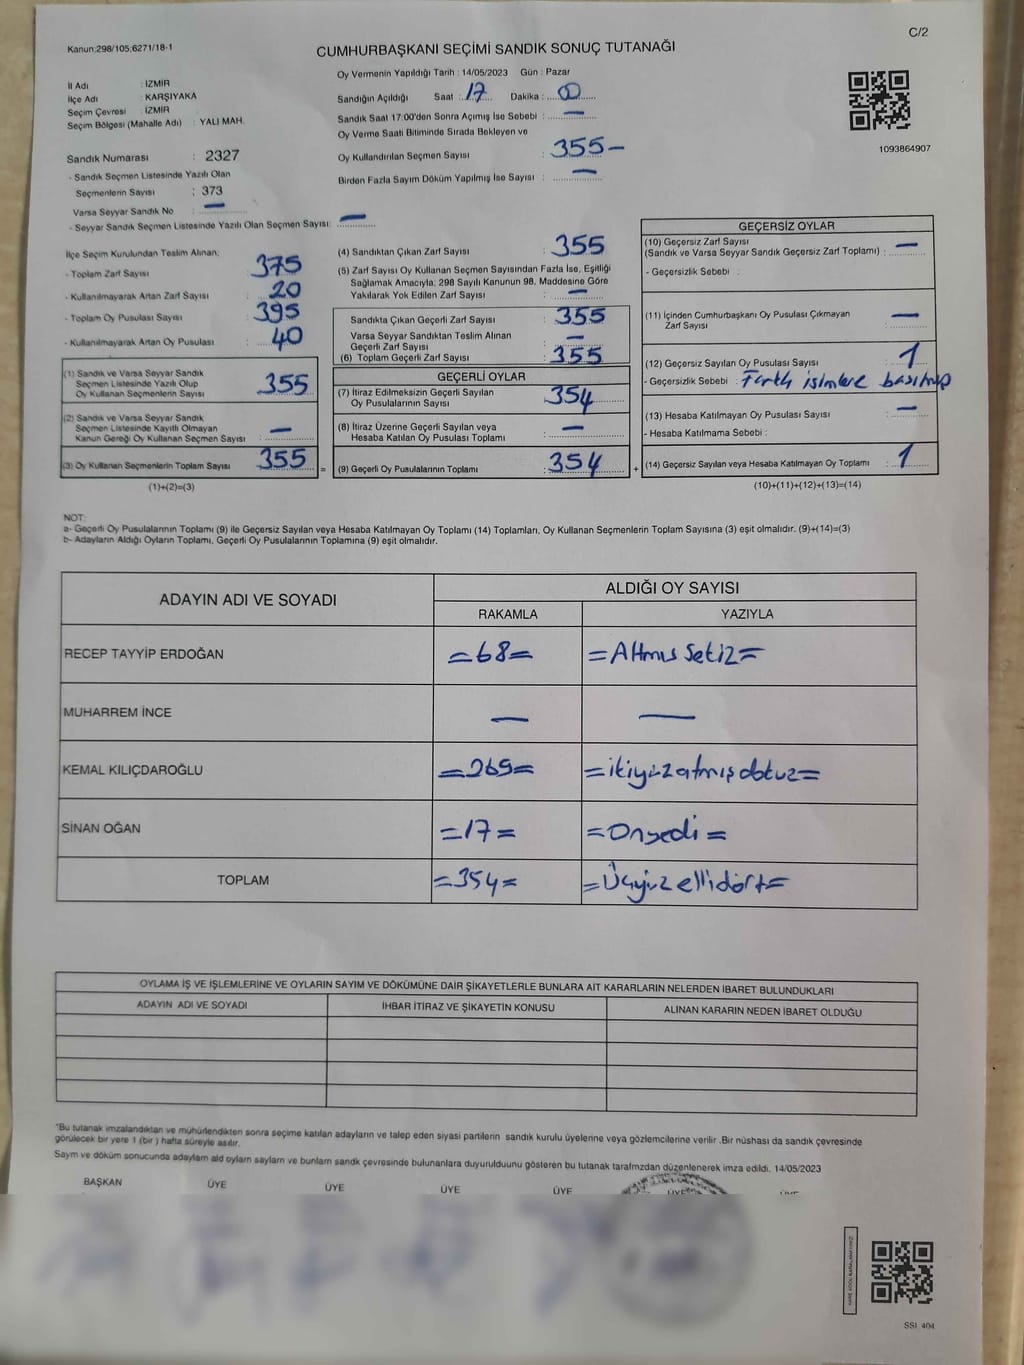 C/2
Kanun:298/105;6271/18-1
CUMHURBAŞKANI SEÇİMİ SANDIK SONUÇ TUTANAĞI
Oy Vermenin Yapıldığı Tarih : 14/05/2023 Gün : Pazar
İl Adı : İZMİR
İlçe Adı : KARŞIYAKA
Seçim Çevresi : İZMİR
Seçim Bölgesi (Mahalle Adı) : YALI MAH.
Sandığın Açıldığı Saat : 17 Dakika :
Sandık Saat 17:00'den Sonra Açımış İse Sebebi : —
Oy Verme Saati Bitiminde Sırada Bekleyen ve
Oy Kullandırılan Seçmen Sayısı : 355-
Birden Fazla Sayım Döküm Yapılmış İse Sayısı : —
1093864907
Sandık Numarası : 2327
- Sandık Seçmen Listesinde Yazılı Olan
Seçmenlerin Sayısı : 373
Varsa Seyyar Sandık No —
- Seyyar Sandık Seçmen Listesinde Yazılı Olan Seçmen Sayısı: —
İlçe Seçim Kurulundan Teslim Alınan;
- Toplam Zarf Sayısı 375
- Kullanılmayarak Artan Zarf Sayısı 20
- Toplam Oy Pusulası Sayısı 395
- Kullanılmayarak Artan Oy Pusulası 40
(1) Sandık ve Varsa Seyyar Sandık
Seçmen Listesinde Yazılı Olup
Oy Kullanan Seçmenlerin Sayısı 355
(2) Sandık ve Varsa Seyyar Sandık
Seçmen Listesinde Kayıtlı Olmayan
Kanun Gereği Oy Kullanan Seçmen Sayısı —
(3) Oy Kullanan Seçmenlerin Toplam Sayısı 355 =
(1)+(2)=(3)
(4) Sandıktan Çıkan Zarf Sayısı : 355
(5) Zarf Sayısı Oy Kullanan Seçmen Sayısından Fazla İse, Eşitliği
Sağlamak Amacıyla; 298 Sayılı Kanunun 98. Maddesine Göre
Yakılarak Yok Edilen Zarf Sayısı : —
Sandıkta Çıkan Geçerli Zarf Sayısı : 355
Varsa Seyyar Sandıktan Teslim Alınan
Geçerli Zarf Sayısı : —
(6) Toplam Geçerli Zarf Sayısı : 355
GEÇERLİ OYLAR
(7) İtiraz Edilmeksizin Geçerli Sayılan
Oy Pusulalarının Sayısı : 354
(8) İtiraz Üzerine Geçerli Sayılan veya
Hesaba Katılan Oy Pusulası Toplamı : —
(9) Geçerli Oy Pusulalarının Toplamı : 354 +
GEÇERSİZ OYLAR
(10) Geçersiz Zarf Sayısı
(Sandık ve Varsa Seyyar Sandık Geçersiz Zarf Toplamı) : —
- Geçersizlik Sebebi :
(11) İçinden Cumhurbaşkanı Oy Pusulası Çıkmayan
Zarf Sayısı : —
(12) Geçersiz Sayılan Oy Pusulası Sayısı : 1
- Geçersizlik Sebebi : Farklı isimlere
(13) Hesaba Katılmayan Oy Pusulası Sayısı : —
- Hesaba Katılmama Sebebi :
(14) Geçersiz Sayılan veya Hesaba Katılmayan Oy Toplamı : 1
(10)+(11)+(12)+(13)=(14)
NOT:
a- Geçerli Oy Pusulalarının Toplamı (9) ile Geçersiz Sayılan veya Hesaba Katılmayan Oy Toplamı (14) Toplamları, Oy Kullanan Seçmenlerin Toplam Sayısına (3) eşit olmalıdır. (9)+(14)=(3)
b- Adayların Aldığı Oyların Toplamı, Geçerli Oy Pusulalarının Toplamına (9) eşit olmalıdır.
ADAYIN ADI VE SOYADI
ALDIĞI OY SAYISI
RAKAMLA YAZIYLA
RECEP TAYYİP ERDOĞAN =68= =Altmış sekiz=
MUHARREM İNCE — —
KEMAL KILIÇDAROĞLU =269= =ikiyüzatmışdokuz=
SİNAN OĞAN =17= =Onyedi=
TOPLAM =354= =Üçyüzellidört=
OYLAMA İŞ VE İŞLEMLERİNE VE OYLARIN SAYIM VE DÖKÜMÜNE DAİR ŞİKAYETLERLE BUNLARA AİT KARARLARIN NELERDEN İBARET BULUNDUKLARI
ADAYIN ADI VE SOYADI İHBAR İTİRAZ VE ŞİKAYETİN KONUSU ALINAN KARARIN NEDEN İBARET OLDUĞU
*Bu tutanak imzalandıktan ve mühürlendikten sonra seçime katılan adayların ve talep eden siyasi partilerin sandık kurulu üyelerine veya gözlemcilerine verilir .Bir nüshası da sandık çevresinde
görülecek bir yere 1 (bir ) hafta süreyle asılır.
Sayım ve döküm sonucunda adaylam ald oylarn saylarn ve bunlarn sandk çevresinde bulunanlara duyurulduunu gösteren bu tutanak tarafmzdan düzenlenerek imza edildi. 14/05/2023
BAŞKAN ÜYE ÜYE ÜYE ÜYE ÜYE
SSI. 404